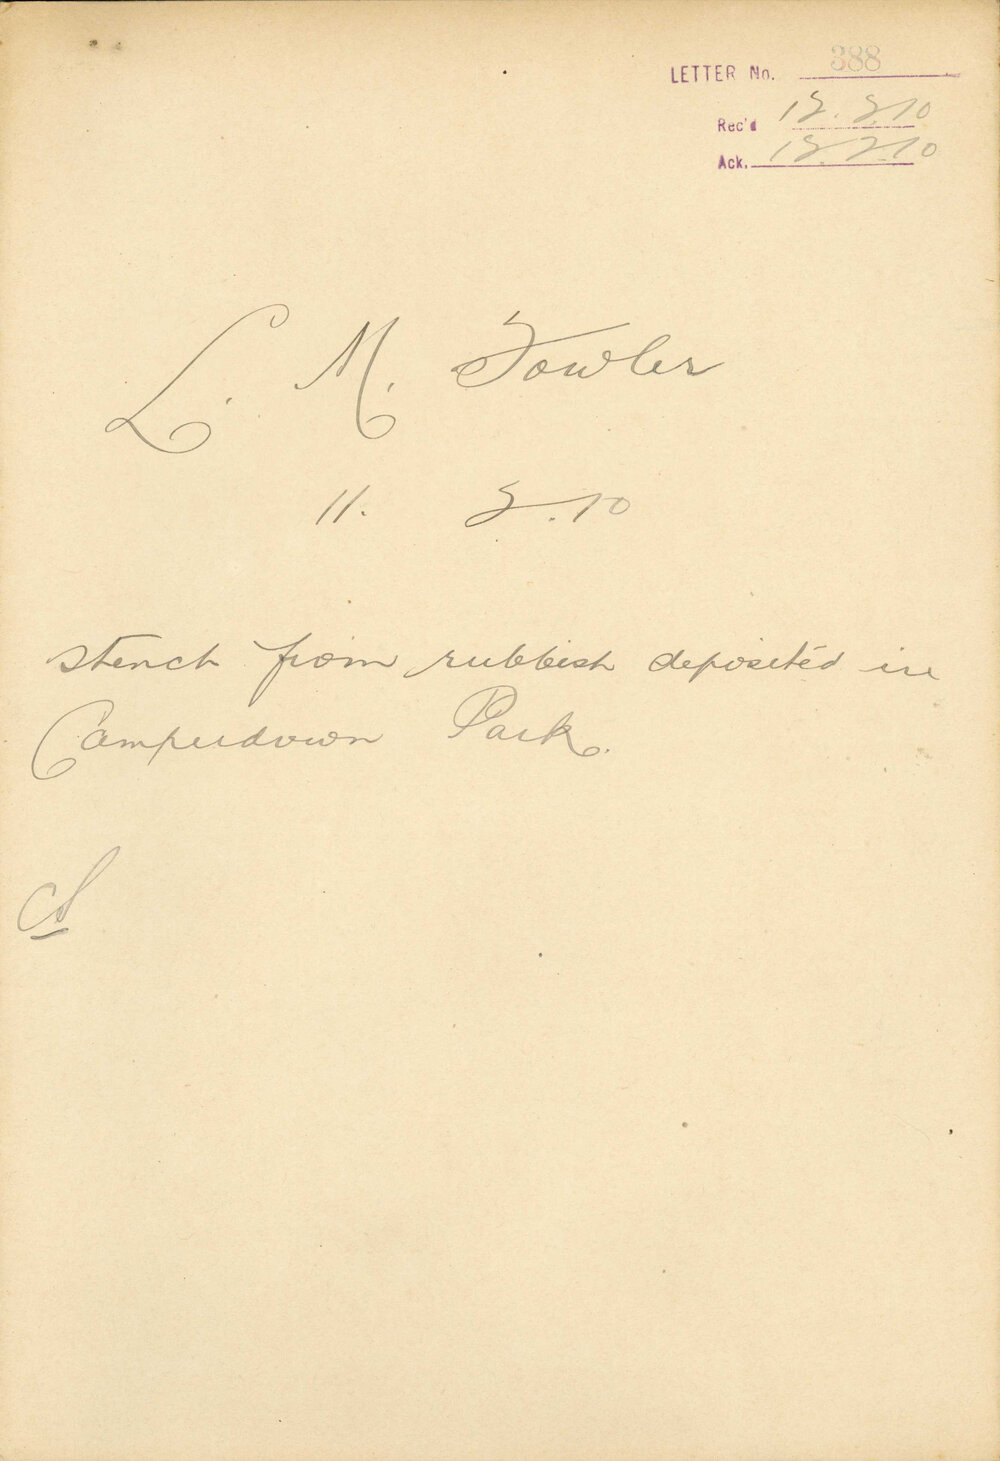 LETTER No. 388
Rec'd 12.2.10
Ack. 12.2.10
L. M. Fowler
11. 2.10
stench from rubbish deposited in
Camperdown Park.